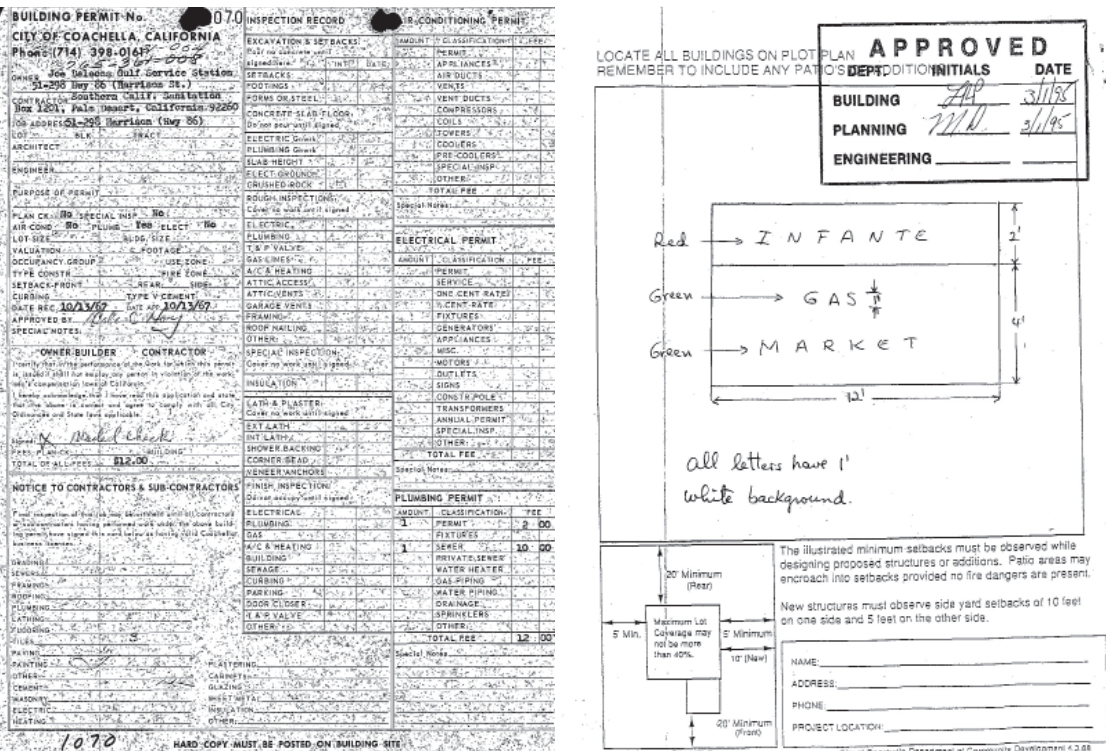 BUILDING PERMIT No. 070
CITY OF COACHELLA, CALIFORNIA
Phone (714) 398-0161
OWNER Joe Deleons Gulf Service Station
51-298 Hwy 86 (Harrison St.)
CONTRACTOR Southern Calif. Sanitation
Box 1201, Palm Desert, California 92260
JOB ADDRESS 51-298 Harrison (Hwy 86)
LOT BLK TRACT
ARCHITECT
ENGINEER
PURPOSE OF PERMIT
PLAN CK. No SPECIAL INSP No
AIR COND No PLUMB Yes ELECT No
LOT SIZE BLDG. SIZE
VALUATION FOOTAGE
OCCUPANCY GROUP USE ZONE
TYPE CONSTR. FIRE ZONE
SETBACK-FRONT REAR SIDE
CURBING TYPE V CEMENT
DATE REC. 10/13/67 DATE APP. 10/13/67
APPROVED BY
SPECIAL NOTES:
OWNER-BUILDER CONTRACTOR
I certify that in the performance of the work for which this permit
is issued I shall not employ any person in violation of the work-
men's compensation laws of California.
I hereby acknowledge that I have read this application and state
that the above is correct and agree to comply with all City
Ordinances and State laws applicable.
Signed X
FEES PLAN CK. BUILDING
TOTAL OF ALL FEES $12.00
NOTICE TO CONTRACTORS & SUB-CONTRACTORS
GRADING
SEWERS
FRAMING
ROOFING
PLUMBING
LATHING
FLOORING
TILES
PAVING
PAINTING
OTHER
CEMENT
MASONRY
ELECTRIC
HEATING
PLASTERING
CABINETS
GLAZING
SHEET METAL
INSULATION
OTHER
1070
HARD COPY MUST BE POSTED ON BUILDING SITE
INSPECTION RECORD
EXCAVATION & SETBACKS
Pour no concrete until
signed here. INT DATE
SETBACKS
FOOTINGS
FORMS OR STEEL
CONCRETE SLAB FLOOR:
Do not pour until signed
ELECTRIC Grnwk
PLUMBING Grnwk
SLAB HEIGHT
ELECT GROUND
CRUSHED ROCK
ROUGH INSPECTIONS
Cover no work until signed
ELECTRIC
PLUMBING
T & P VALVE
GAS LINES
A/C & HEATING
ATTIC ACCESS
ATTIC VENTS
GARAGE VENTS
FRAMING
ROOF NAILING
OTHER:
SPECIAL INSPECTION:
Cover no work until signed
INSULATION
LATH & PLASTER:
Cover no work until signed
EXT LATH
INT LATH
SHOWER BACKING
CORNER BEAD
VENEER ANCHORS
FINISH INSPECTION:
Do not occupy until signed
ELECTRICAL
PLUMBING
GAS
A/C & HEATING
BUILDING
SEWAGE
CURBING
PARKING
DOOR CLOSER
T & P VALVE
OTHER:
AIR-CONDITIONING PERMIT
AMOUNT CLASSIFICATION FEE
PERMIT
APPLIANCES
AIR DUCTS
VENTS
VENT DUCTS
COMPRESSORS
COILS
TOWERS
COOLERS
PRE-COOLERS
SPECIAL INSP.
OTHER
TOTAL FEE
Special Notes:
ELECTRICAL PERMIT
AMOUNT CLASSIFICATION FEE
PERMIT
SERVICE
ONE CENT RATE
½ CENT RATE
FIXTURES
GENERATORS
APPLIANCES
MISC.
MOTORS
OUTLETS
SIGNS
CONSTR. POLE
TRANSFORMERS
ANNUAL PERMIT
SPECIAL INSP.
OTHER
TOTAL FEE
Special Notes
PLUMBING PERMIT
AMOUNT CLASSIFICATION FEE
1 PERMIT 2 00
FIXTURES
1 SEWER 10 00
PRIVATE SEWER
WATER HEATER
GAS PIPING
WATER PIPING
DRAINAGE
SPRINKLERS
OTHER
TOTAL FEE 12 00
Special Notes
LOCATE ALL BUILDINGS ON PLOT PLAN
REMEMBER TO INCLUDE ANY PATIO'S
APPROVED
DEPT. INITIALS DATE
BUILDING 3/1/95
PLANNING MD 3/1/95
ENGINEERING
Red → INFANTE 2'
Green → GAS 1'
Green → MARKET 4'
12'
all letters have 1'
white background.
20' Minimum
(Rear)
5' Min.
Maximum Lot
Coverage may
not be more
than 40%.
5' Minimum
10' (New)
20' Minimum
(Front)
The illustrated minimum setbacks must be observed while
designing proposed structures or additions. Patio areas may
encroach into setbacks provided no fire dangers are present.
New structures must observe side yard setbacks of 10 feet
on one side and 5 feet on the other side.
NAME:
ADDRESS:
PHONE:
PROJECT LOCATION:
Department of Community Development